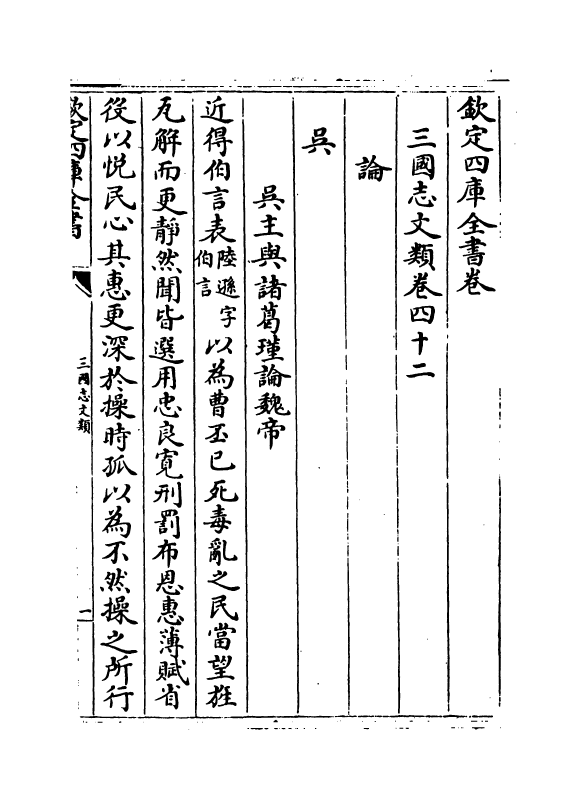 欽定四庫全書卷
三國志文類卷四十二
論
吳
吳主與諸葛瑾論魏帝
近得伯言表陸遜字伯言以為曹丕已死毒亂之民當望旌
瓦解而更靜然聞皆選用忠良寬刑罰布恩惠薄賦省
役以悅民心其惠更深於操時孤以為不然操之所行
欽定四庫全書
三國志文類
一